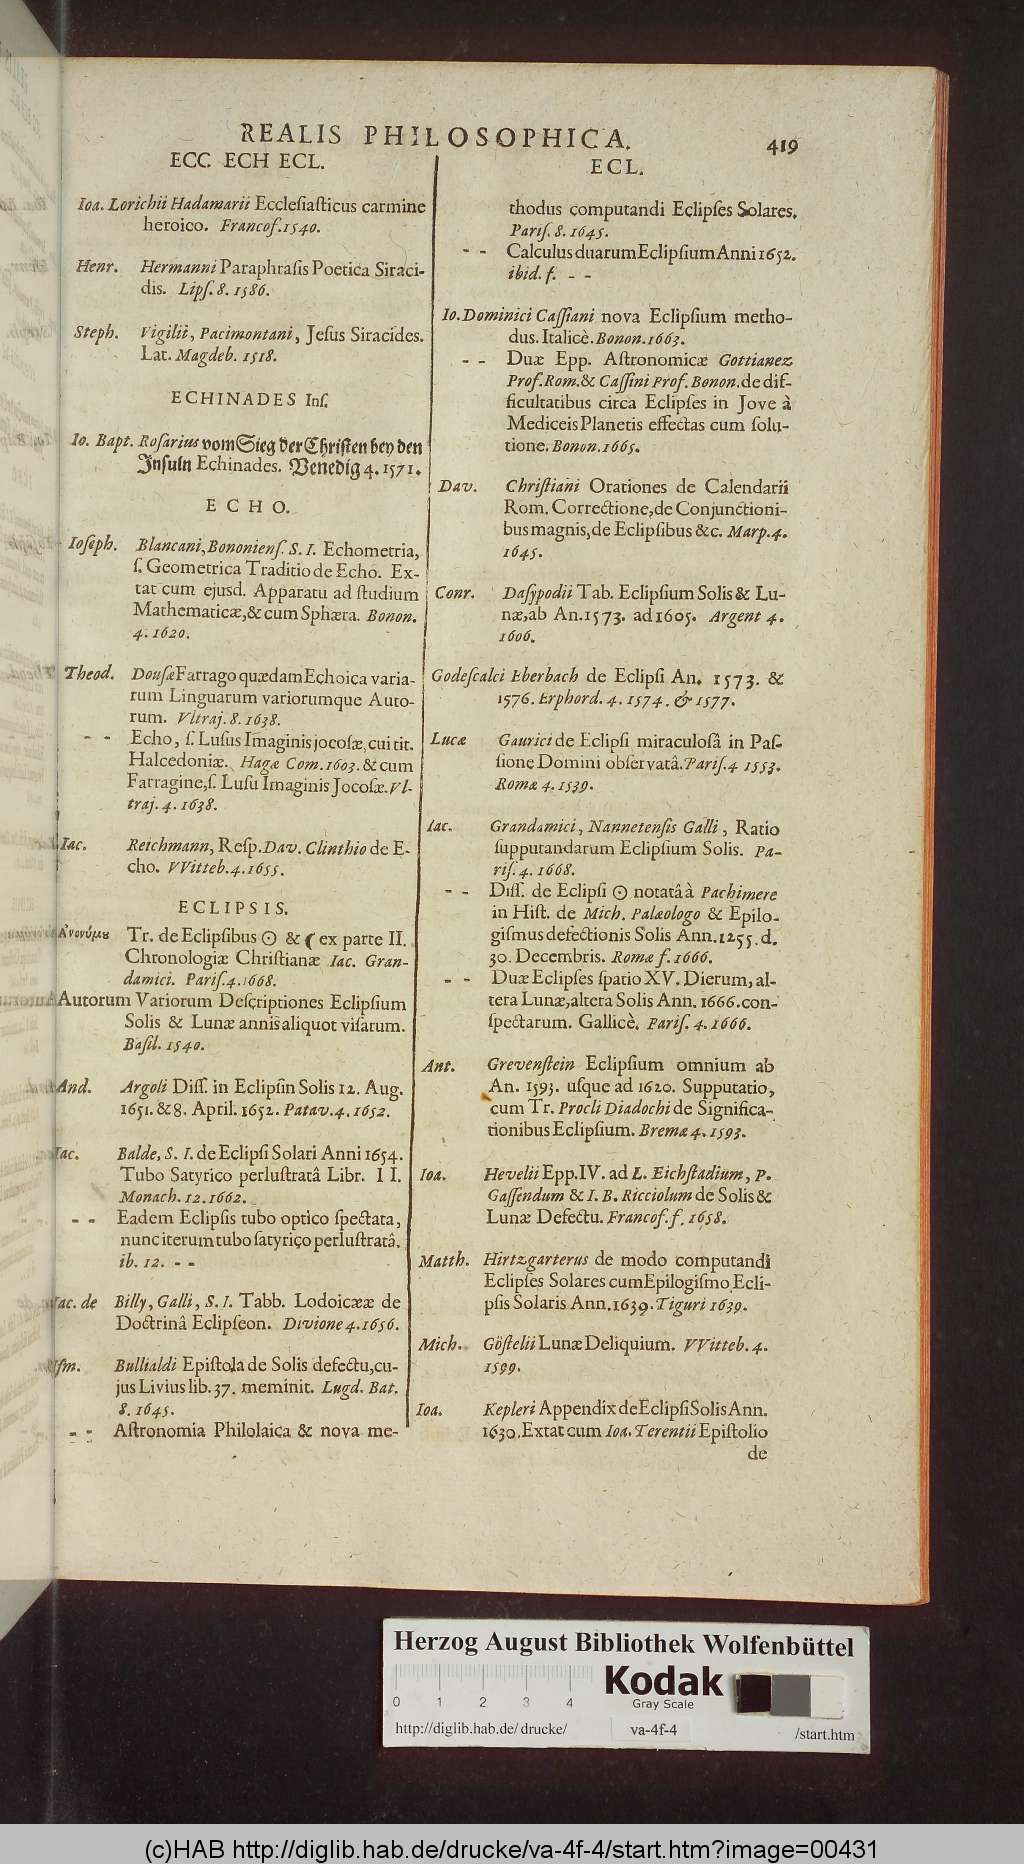 REALIS PHILOSOPHICA.
419
ECC. ECH ECL.
Ioa. Lorichii Hadamarii Ecclesiasticus carmine
heroico. Francof. 1540.
Henr. Hermanni Paraphrasis Poetica Siraci-
dis. Lips. 8. 1586.
Steph. Vigilii, Pacimontani, Jesus Siracides.
Lat. Magdeb. 1518.
ECHINADES Ins.
Io. Bapt. Rosarius vom Sieg der Christen bey den
Insuln Echinades. Venedig 4. 1571.
ECHO.
Ioseph. Blancani, Bononiens. S. I. Echometria,
s. Geometrica Traditio de Echo. Ex-
tat cum ejusd. Apparatu ad studium
Mathematicæ, & cum Sphæra. Bonon.
4. 1620.
Theod. Dousæ Farrago quædam Echoica varia-
rum Linguarum variorumque Auto-
rum. Vltraj. 8. 1638.
- - Echo, s. Lusus Imaginis jocosæ, cui tit.
Halcedoniæ. Hagæ Com. 1603. & cum
Farragine, s. Lusu Imaginis Jocosæ. Vl-
traj. 4. 1638.
Iac. Reichmann, Resp. Dav. Clinthio de E-
cho. VVitteb. 4. 1655.
ECLIPSIS.
Ἀνονύμȣ Tr. de Eclipsibus ☉ & ☾ ex parte II.
Chronologiæ Christianæ Iac. Gran-
damici. Paris. 4. 1668.
Autorum Variorum Descriptiones Eclipsium
Solis & Lunæ annis aliquot visarum.
Basil. 1540.
And. Argoli Diss. in Eclipsin Solis 12. Aug.
1651. & 8. April. 1652. Patav. 4. 1652.
Iac. Balde, S. I. de Eclipsi Solari Anni 1654.
Tubo Satyrico perlustratâ Libr. II.
Monach. 12. 1662.
- - Eadem Eclipsis tubo optico spectata,
nunc iterum tubo satyrico perlustratâ.
ib. 12. - -
Iac. de Billy, Galli, S. I. Tabb. Lodoicææ de
Doctrinâ Eclipseon. Divione 4. 1656.
Ism. Bullialdi Epistola de Solis defectu, cu-
jus Livius lib. 37. meminit. Lugd. Bat.
8. 1645.
- - Astronomia Philolaica & nova me-
ECL.
thodus computandi Eclipses Solares.
Paris. 8. 1645.
- - Calculus duarum Eclipsium Anni 1652.
ibid. f. - -
Io. Dominici Cassiani nova Eclipsium metho-
dus. Italicè. Bonon. 1663.
- - Duæ Epp. Astronomicæ Gottianez
Prof. Rom. & Cassini Prof. Bonon. de dif-
ficultatibus circa Eclipses in Jove à
Mediceis Planetis effectas cum solu-
tione. Bonon. 1665.
Dav. Christiani Orationes de Calendarii
Rom. Correctione, de Conjunctioni-
bus magnis, de Eclipsibus &c. Marp. 4.
1645.
Conr. Dasypodii Tab. Eclipsium Solis & Lu-
næ, ab An. 1573. ad 1605. Argent 4.
1606.
Godescalci Eberbach de Eclipsi An. 1573. &
1576. Erphord. 4. 1574. & 1577.
Lucæ Gaurici de Eclipsi miraculosâ in Pas-
sione Domini observatâ. Paris. 4 1553.
Romæ 4. 1539.
Iac. Grandamici, Nannetensis Galli, Ratio
supputandarum Eclipsium Solis. Pa-
ris. 4. 1668.
- - Diss. de Eclipsi ☉ notatâ à Pachimere
in Hist. de Mich. Palæologo & Epilo-
gismus defectionis Solis Ann. 1255. d.
30. Decembris. Romæ f. 1666.
- - Duæ Eclipses spatio XV. Dierum, al-
tera Lunæ, altera Solis Ann. 1666. con-
spectarum. Gallicè. Paris. 4. 1666.
Ant. Grevenstein Eclipsium omnium ab
An. 1593. usque ad 1620. Supputatio,
cum Tr. Procli Diadochi de Significa-
tionibus Eclipsium. Bremæ 4. 1593.
Ioa. Hevelii Epp. IV. ad L. Eichstadium, P.
Gassendum & I. B. Ricciolum de Solis &
Lunæ Defectu. Francof. f. 1658.
Matth. Hirtzgarterus de modo computandi
Eclipses Solares cum Epilogismo Ecli-
psis Solaris Ann. 1639. Tiguri 1639.
Mich. Göstelii Lunæ Deliquium. VVitteb. 4.
1599.
Ioa. Kepleri Appendix de Eclipsi Solis Ann.
1630. Extat cum Ioa. Terentii Epistolio
de
Herzog August Bibliothek Wolfenbüttel
Kodak
Gray Scale
0 1 2 3 4
http://diglib.hab.de/ drucke/ va-4f-4 /start.htm
(c)HAB http://diglib.hab.de/drucke/va-4f-4/start.htm?image=00431